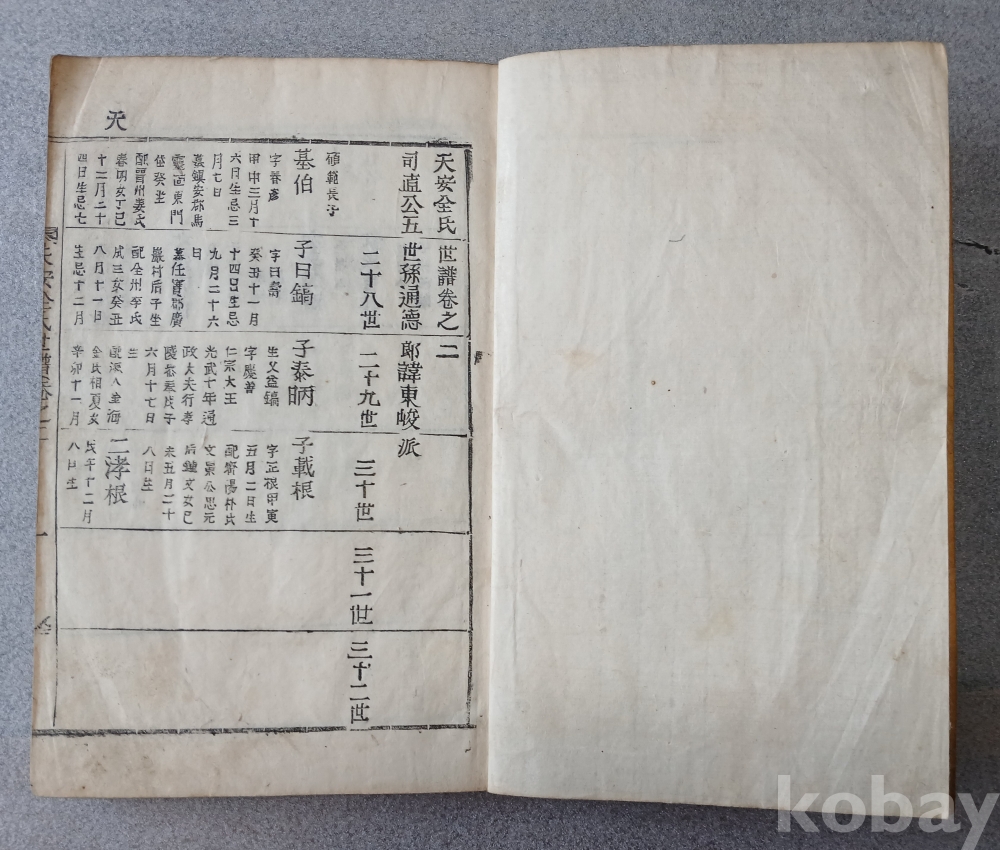 天
天安全氏世譜卷之二
司直公五世孫通德郎諱東峻派
二十八世
二十九世
三十世
三十一世
三十二世
碩範長子
基伯
字春彦
甲申三月十
六日生忌三
月七日
墓鎭安郡馬
靈面東門
配晋州姜氏
春明女丁巳
十二月二十
四日生忌七
子曰鎬
字曰壽
癸丑十一月
十四日生忌
九月二十六
日
墓任實郡廣
配全州李氏
成三女癸丑
八月十一日
生忌十二月
子泰昞
生父益鎬
字慶善
仁宗大王
光武十年通
政大夫行孝
六月十七日
生
金氏相夏女
辛卯十一月
子載根
字正根甲寅
五月二日生
配密陽朴氏
文景公思元
后鍾文女己
未五月二十
八日生
二浡根
戊午十二月
八日生
天安全氏世譜卷之二
一
kobay